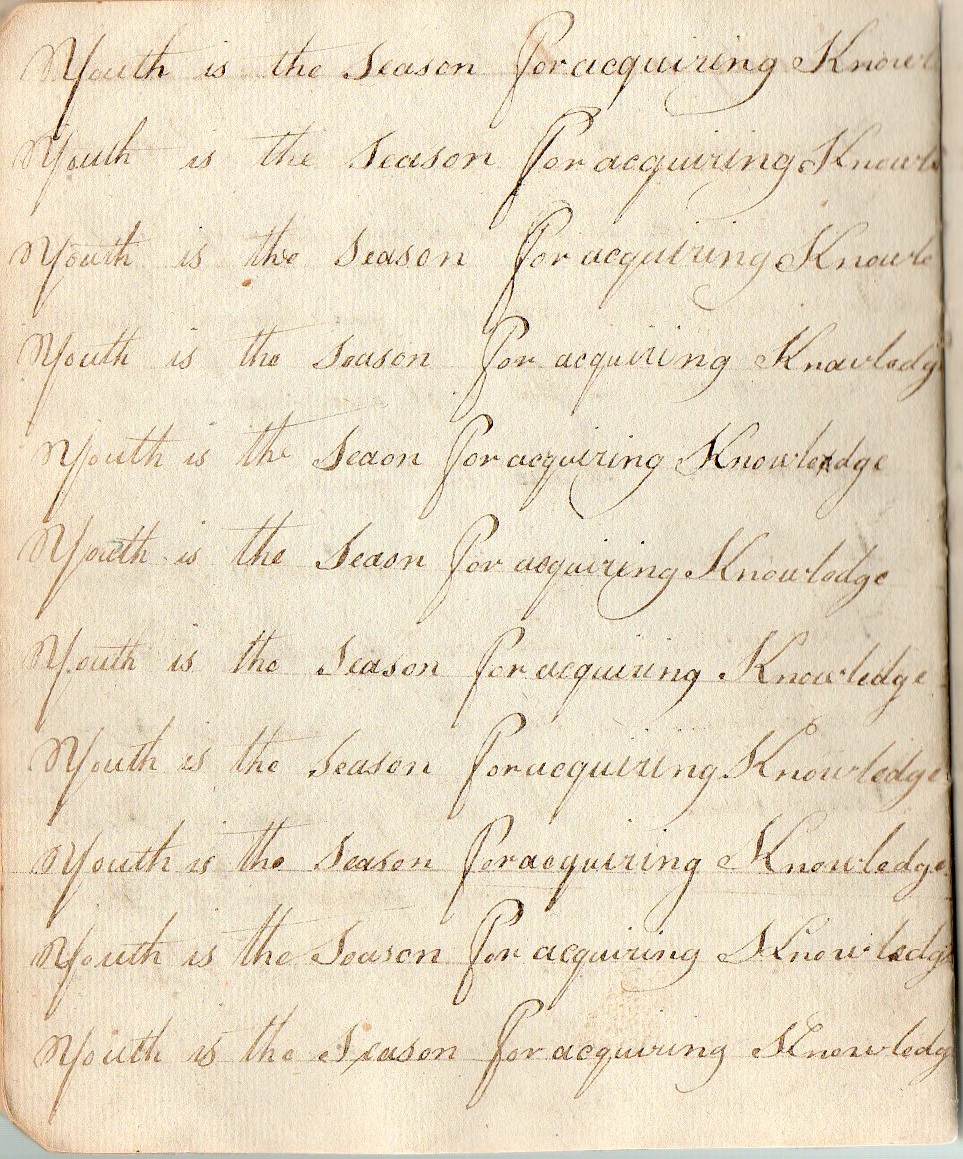 Youth is the Season For acquiring Knowl
Youth is the Season For acquiring Knowle
Youth is the Season For acquiring Knowle
Youth is the Season For acquiring Knowledg
Youth is the Seaon For acquiring Knowledge
Youth is the Seaon For acquiring Knowledge
Youth is the Season For acquiring Knowledge
Youth is the Season For acquiring Knowledge
Youth is the Season For acquiring Knowledge
Youth is the Season For acquiring Knowledg
Youth is the Season For acquiring Knowledg